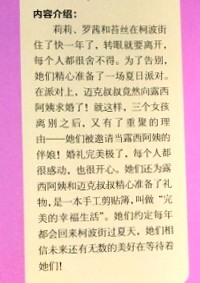 内容介绍：
莉莉、罗茜和苔丝在柯波街
住了快一年了，转眼就要离开，
每个人都很舍不得。为了告别，
她们精心准备了一场夏日派对。
在派对上，迈克叔叔竟然向露西
阿姨求婚了！就这样，三个女孩
离别之后，又有了重聚的理
由——她们被邀请当露西阿姨的
伴娘！婚礼完美极了，每个人都
很感动，也很开心。她们还为露
西阿姨和迈克叔叔精心准备了礼
物，是一本手工剪贴簿，叫做“完
美的幸福生活”。她们约定每年
都会回来柯波街过夏天，她们相
信未来还有无数的美好在等待着
她们！